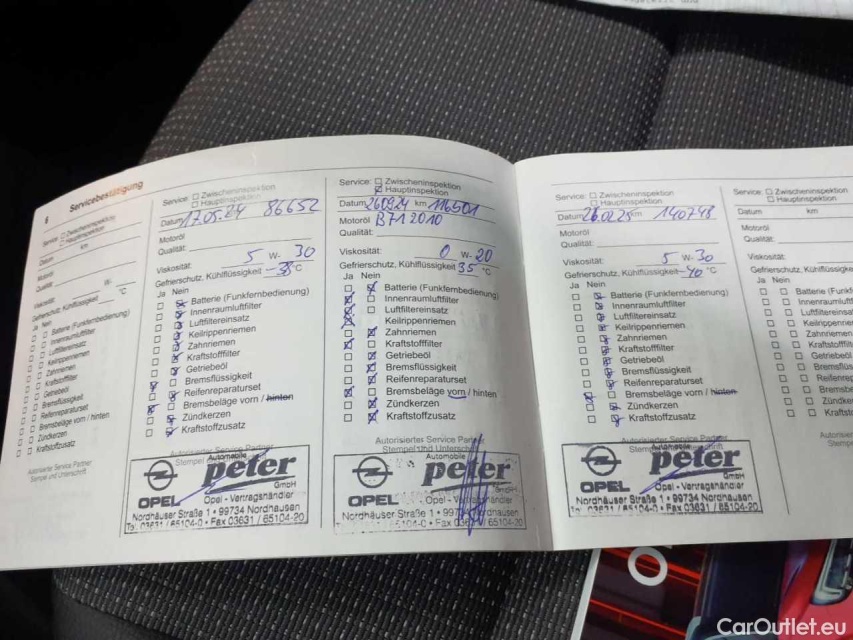 8 Servicebestätigung
Service: Zwischeninspektion
Hauptinspektion
Datum km
Motoröl
Qualität:
Viskosität: W-
Gefrierschutz, Kühlflüssigkeit °C
Ja Nein
Batterie (Funkfernbedienung)
Innenraumluftfilter
Luftfiltereinsatz
Keilrippenriemen
Zahnriemen
Kraftstofffilter
Getriebeöl
Bremsflüssigkeit
Reifenreparaturset
Bremsbeläge vorn / hinten
Zündkerzen
Kraftstoffzusatz
Autorisierter Service Partner
Stempel und Unterschrift
Service: Zwischeninspektion
Hauptinspektion
Datum 17.05.24 86652
Motoröl
Qualität:
Viskosität: 5 W- 30
Gefrierschutz, Kühlflüssigkeit -38 °C
Ja Nein
Batterie (Funkfernbedienung)
Innenraumluftfilter
Luftfiltereinsatz
Keilrippenriemen
Zahnriemen
Kraftstofffilter
Getriebeöl
Bremsflüssigkeit
Reifenreparaturset
Bremsbeläge vorn / hinten
Zündkerzen
Kraftstoffzusatz
Autorisierter Service Partner
Stempel
Automobile
peter
GmbH
OPEL Opel - Vertragshändler
Nordhäuser Straße 1 • 99734 Nordhausen
Tel. 03631 / 65104-0 • Fax 03631 / 65104-20
Service: Zwischeninspektion
Hauptinspektion
Datum 260924 km 116501
Motoröl B71 2010
Qualität:
Viskosität: 0 W- 20
Gefrierschutz, Kühlflüssigkeit 35 °C
Ja Nein
Batterie (Funkfernbedienung)
Innenraumluftfilter
Luftfiltereinsatz
Keilrippenriemen
Zahnriemen
Kraftstofffilter
Getriebeöl
Bremsflüssigkeit
Reifenreparaturset
Bremsbeläge vorn / hinten
Zündkerzen
Kraftstoffzusatz
Autorisiertes Service Partner
Stempel und Unterschrift
Automobile
peter
GmbH
OPEL Opel - Vertragshändler
Nordhäuser Straße 1 • 99734 Nordhausen
65104-0 • Fax 03631 / 65104-20
Service: Zwischeninspektion
Hauptinspektion
Datum 26.02.25 140748
Motoröl
Qualität:
Viskosität: 5 W- 30
Gefrierschutz, Kühlflüssigkeit -40 °C
Ja Nein
Batterie (Funkfernbedienung)
Innenraumluftfilter
Luftfiltereinsatz
Keilrippenriemen
Zahnriemen
Kraftstofffilter
Getriebeöl
Bremsflüssigkeit
Reifenreparaturset
Bremsbeläge vorn / hinten
Zündkerzen
Kraftstoffzusatz
Autorisiertes Service Partner
Automobile
peter
GmbH
OPEL Opel - Vertragshändler
Nordhäuser Straße 1 • 99734 Nordhausen
Tel. 03631 / 65104-0 • Fax 03631 / 65104-20
Service: Zwischeninspektion
Hauptinspektion
Datum km
Motoröl
Qualität:
Viskosität: W-
Gefrierschutz, Kühlflüssigke
Ja Nein
Batterie (Funkf
Innenraumluftf
Luftfiltereinsa
Keilrippenrie
Zahnriemen
Kraftstofffilt
Getriebeöl
Bremsflüs
Reifenrep
Bremsbel
Zündkerz
Kraftsto
Autoris
Stempe
CarOutlet.eu